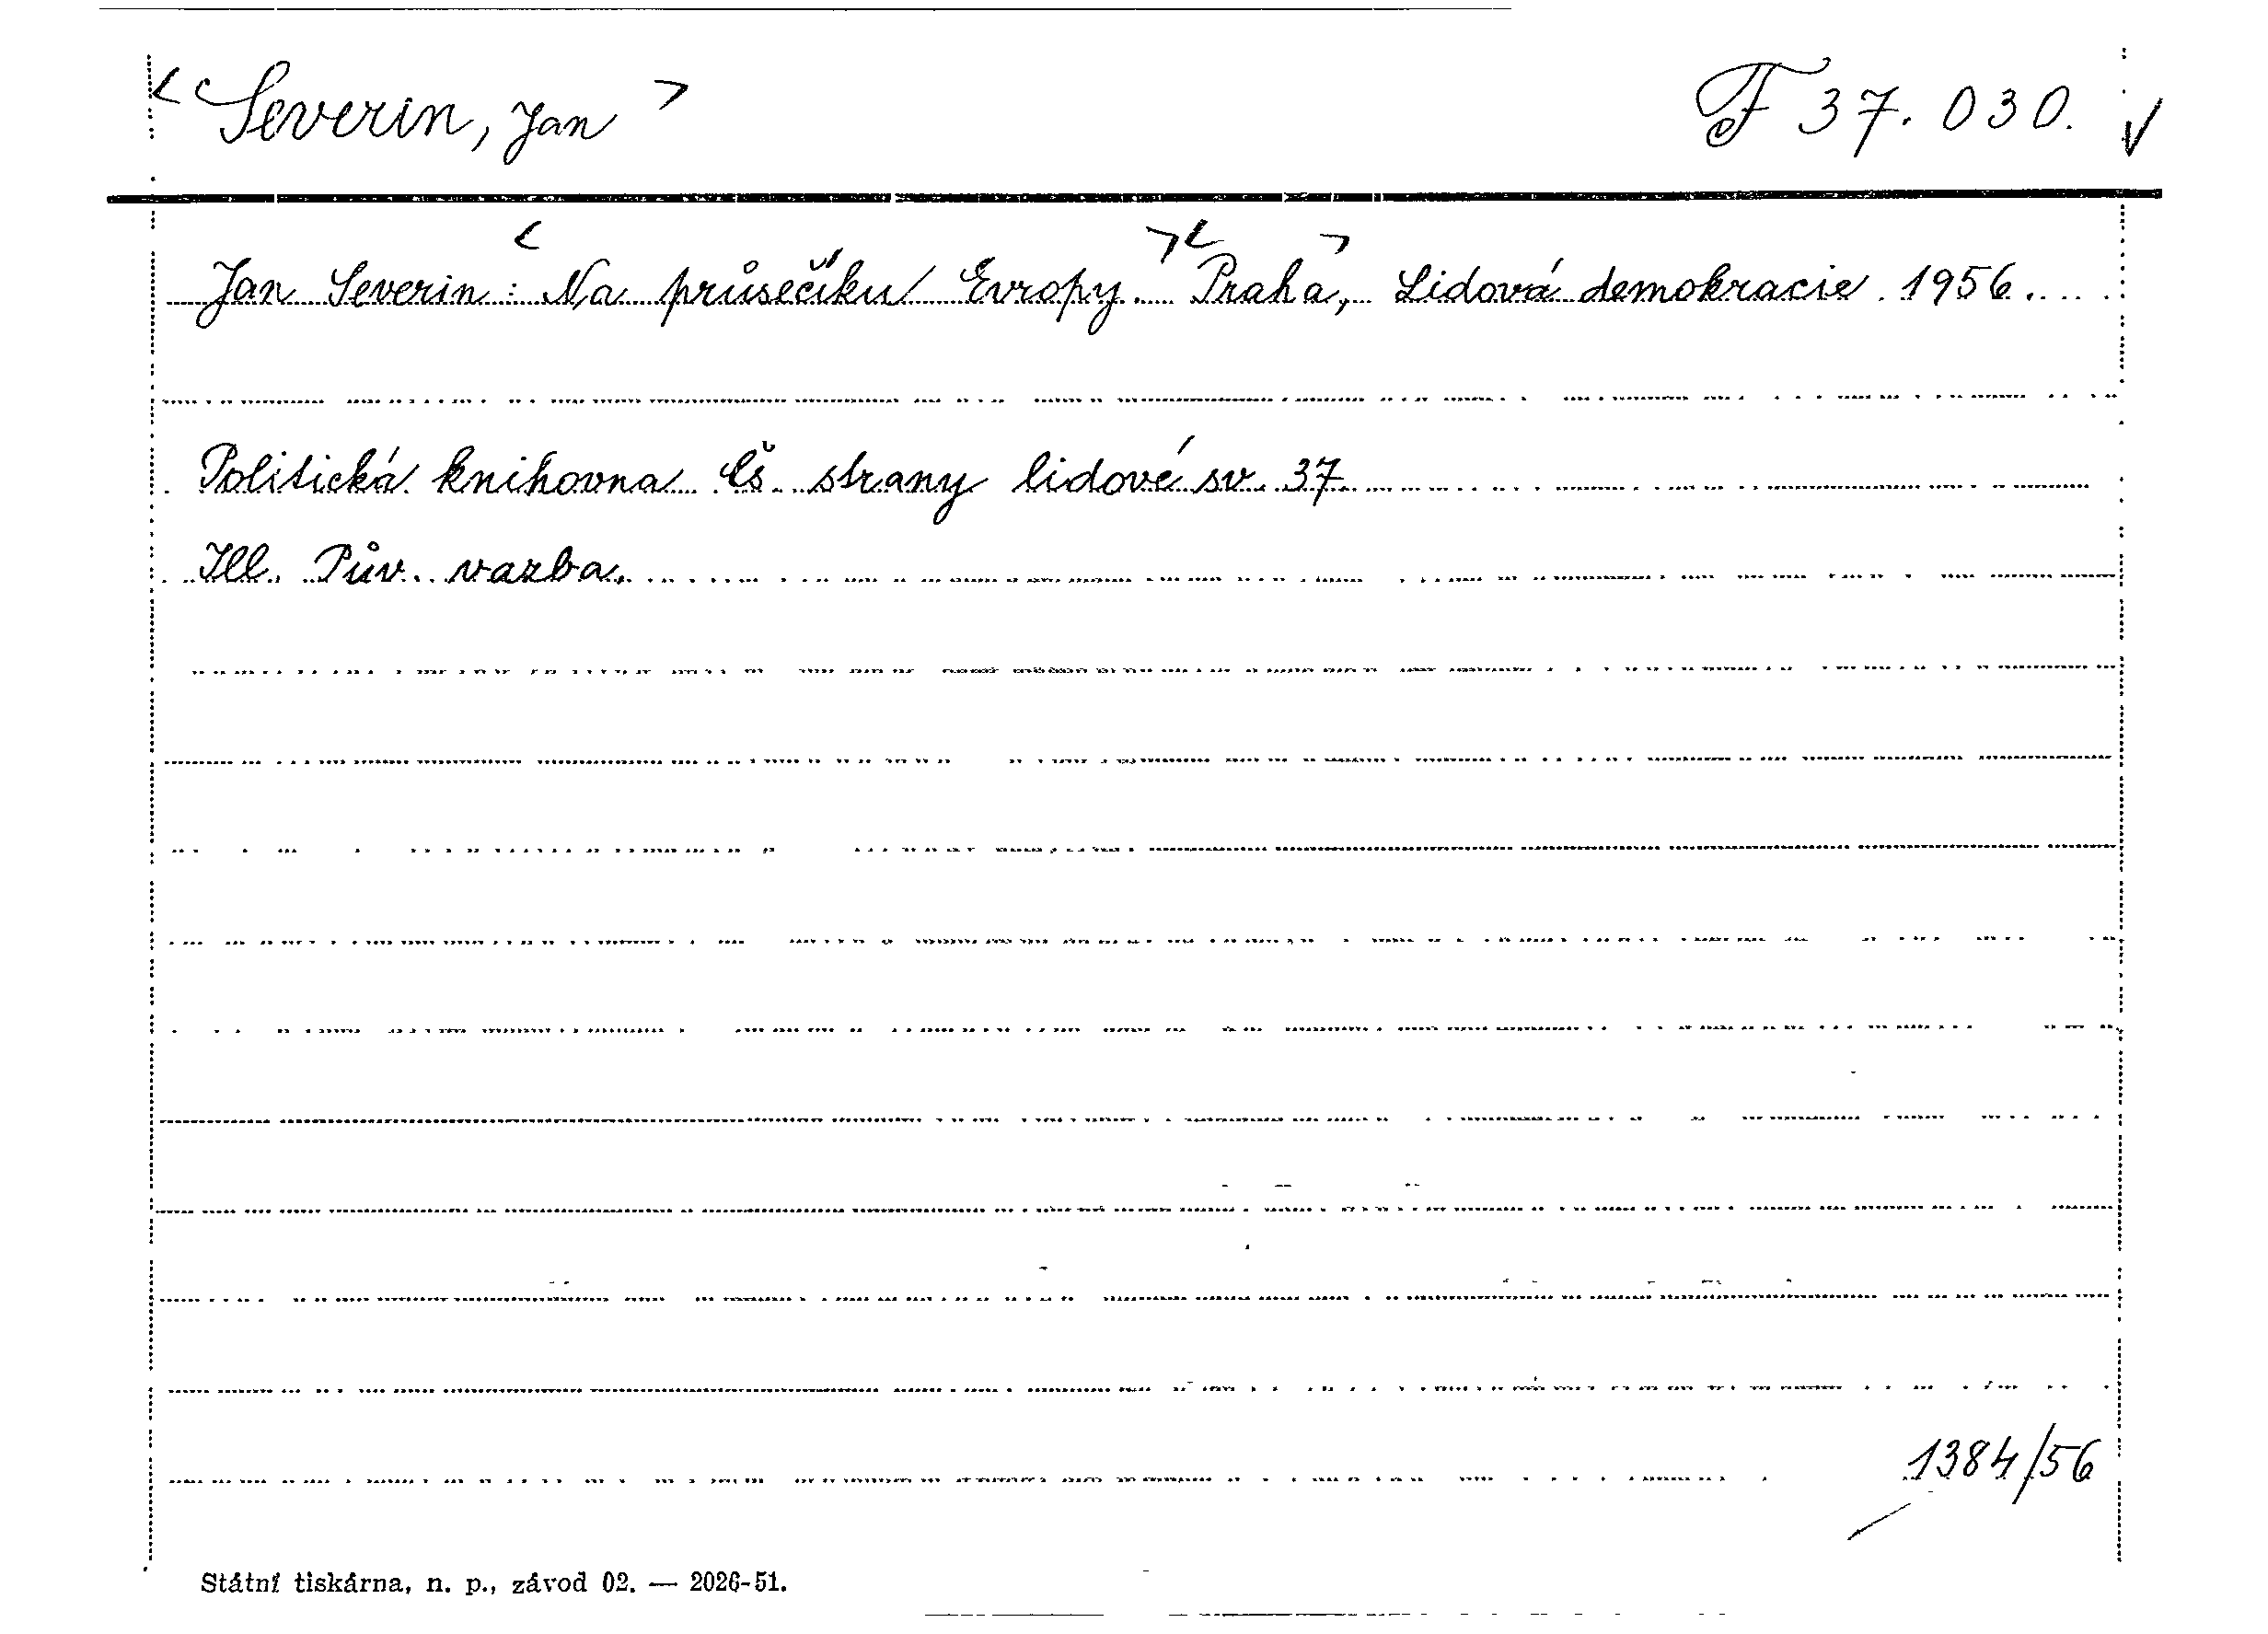 < Severin, Jan >
F 37.030. √
Jan Severin: <Na průsečíku Evropy.> <Praha,> Lidová demokracie 1956.
Politická knihovna Čs. strany lidové sv. 37.
Ill. Pův. vazba.
1384/56
Státní tiskárna, n. p., závod 02. — 2026-51.